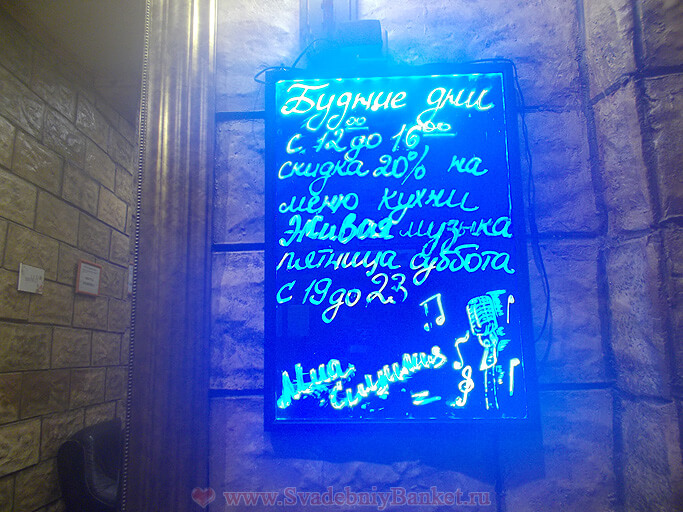 Будние дни
с 12⁰⁰ до 16⁰⁰
скидка 20% на
меню кухни
Живая музыка
пятница суббота
с 19 до 23
Сицилия
www.SvadebniyBanket.ru